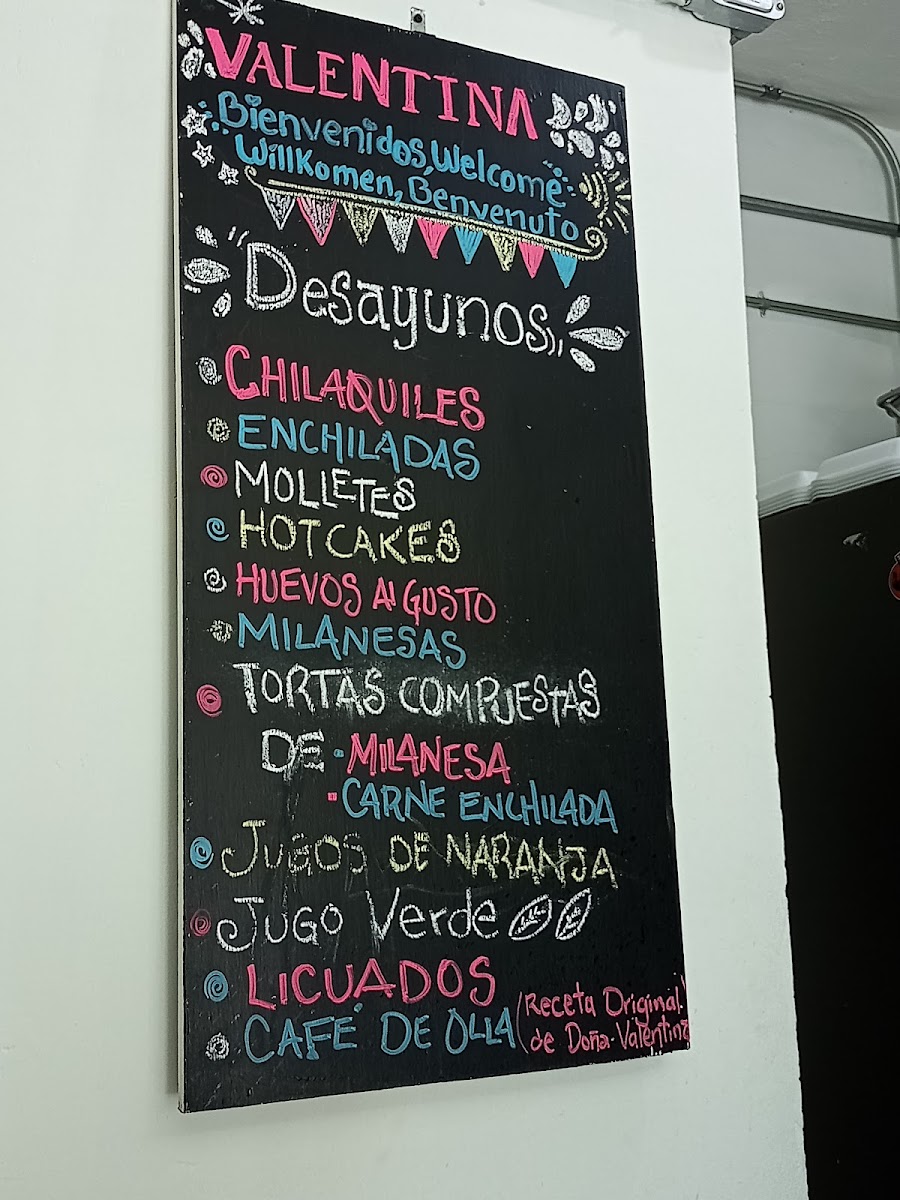 VALENTINA
Bienvenidos, Welcome
Willkomen, Benvenuto
Desayunos
CHILAQUILES
ENCHILADAS
MOLLETES
HOT CAKES
HUEVOS Al GUSTO
MILANESAS
TORTAS COMPUESTAS
DE · MILANESA
· CARNE ENCHILADA
JUGOS DE NARANJA
JUGO Verde
LICUADOS
CAFÉ DE OLLA (Receta Original
de Doña Valentina)